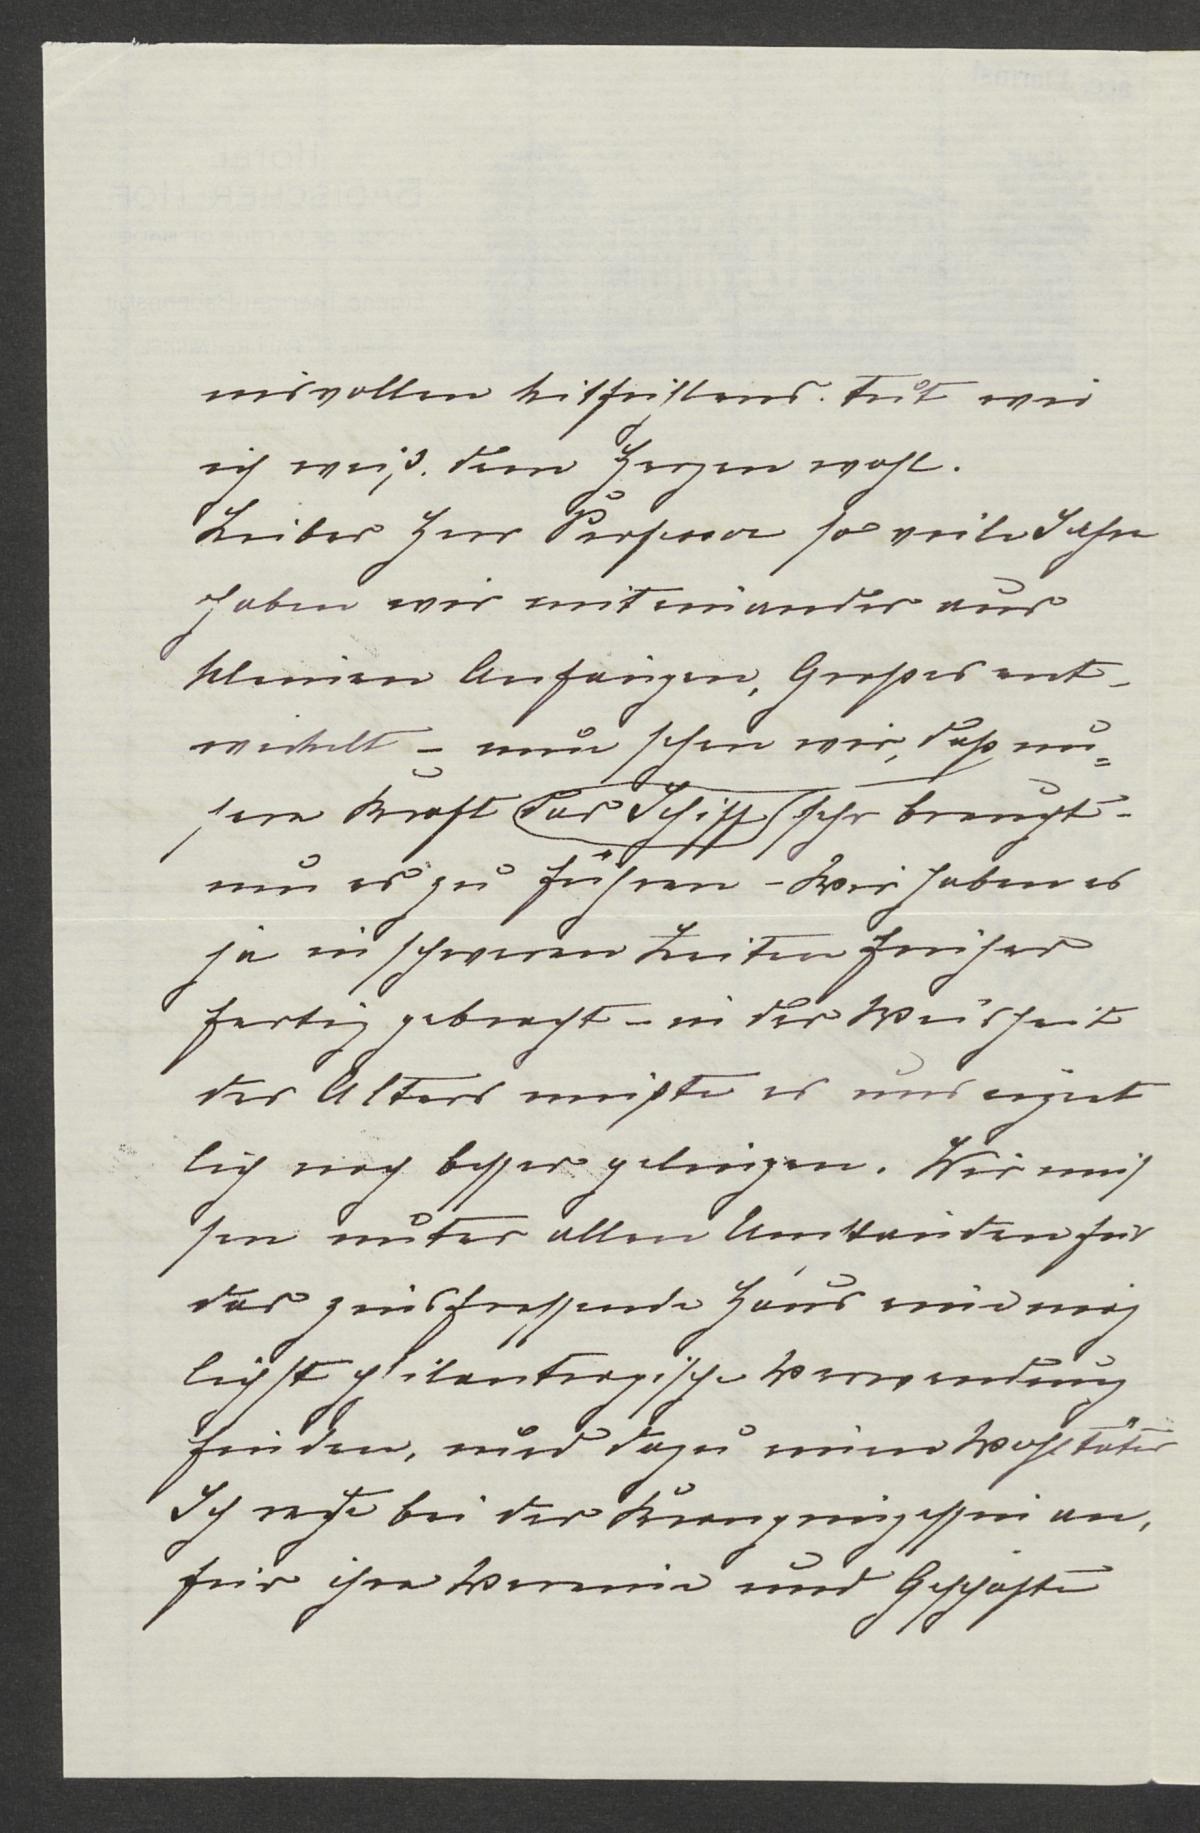 nisvollen hilfeistens. Tut wie
ich weiß. dem Herzen wohl.
Lieber Herr Professor so viele Jahre
haben wir miteinander aus
kleinen Anfängen, Großes ent-
wickelt – nun sehen wir, daß un-
sere Kraft das Schiff sehr braucht -
um es zu führen – Wir haben es
ja in schweren Zeiten früher
fertig gebracht – in der Weisheit
des Alters müßte es uns eigent
lich noch besser gelingen. Wir müs
sen unter allen Umständen für
das zinsfressende Haus eine mög
lichst philantropische Verwendung
finden, und dazu einen Wohltäter
Ich rege bei der Kronprinzessin an,
für ihre Vereine und Geschäfte